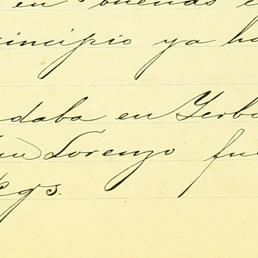 en buenas e
rincipio ya ha
daba en Yerba
an Lorenzo fue
Kgs.